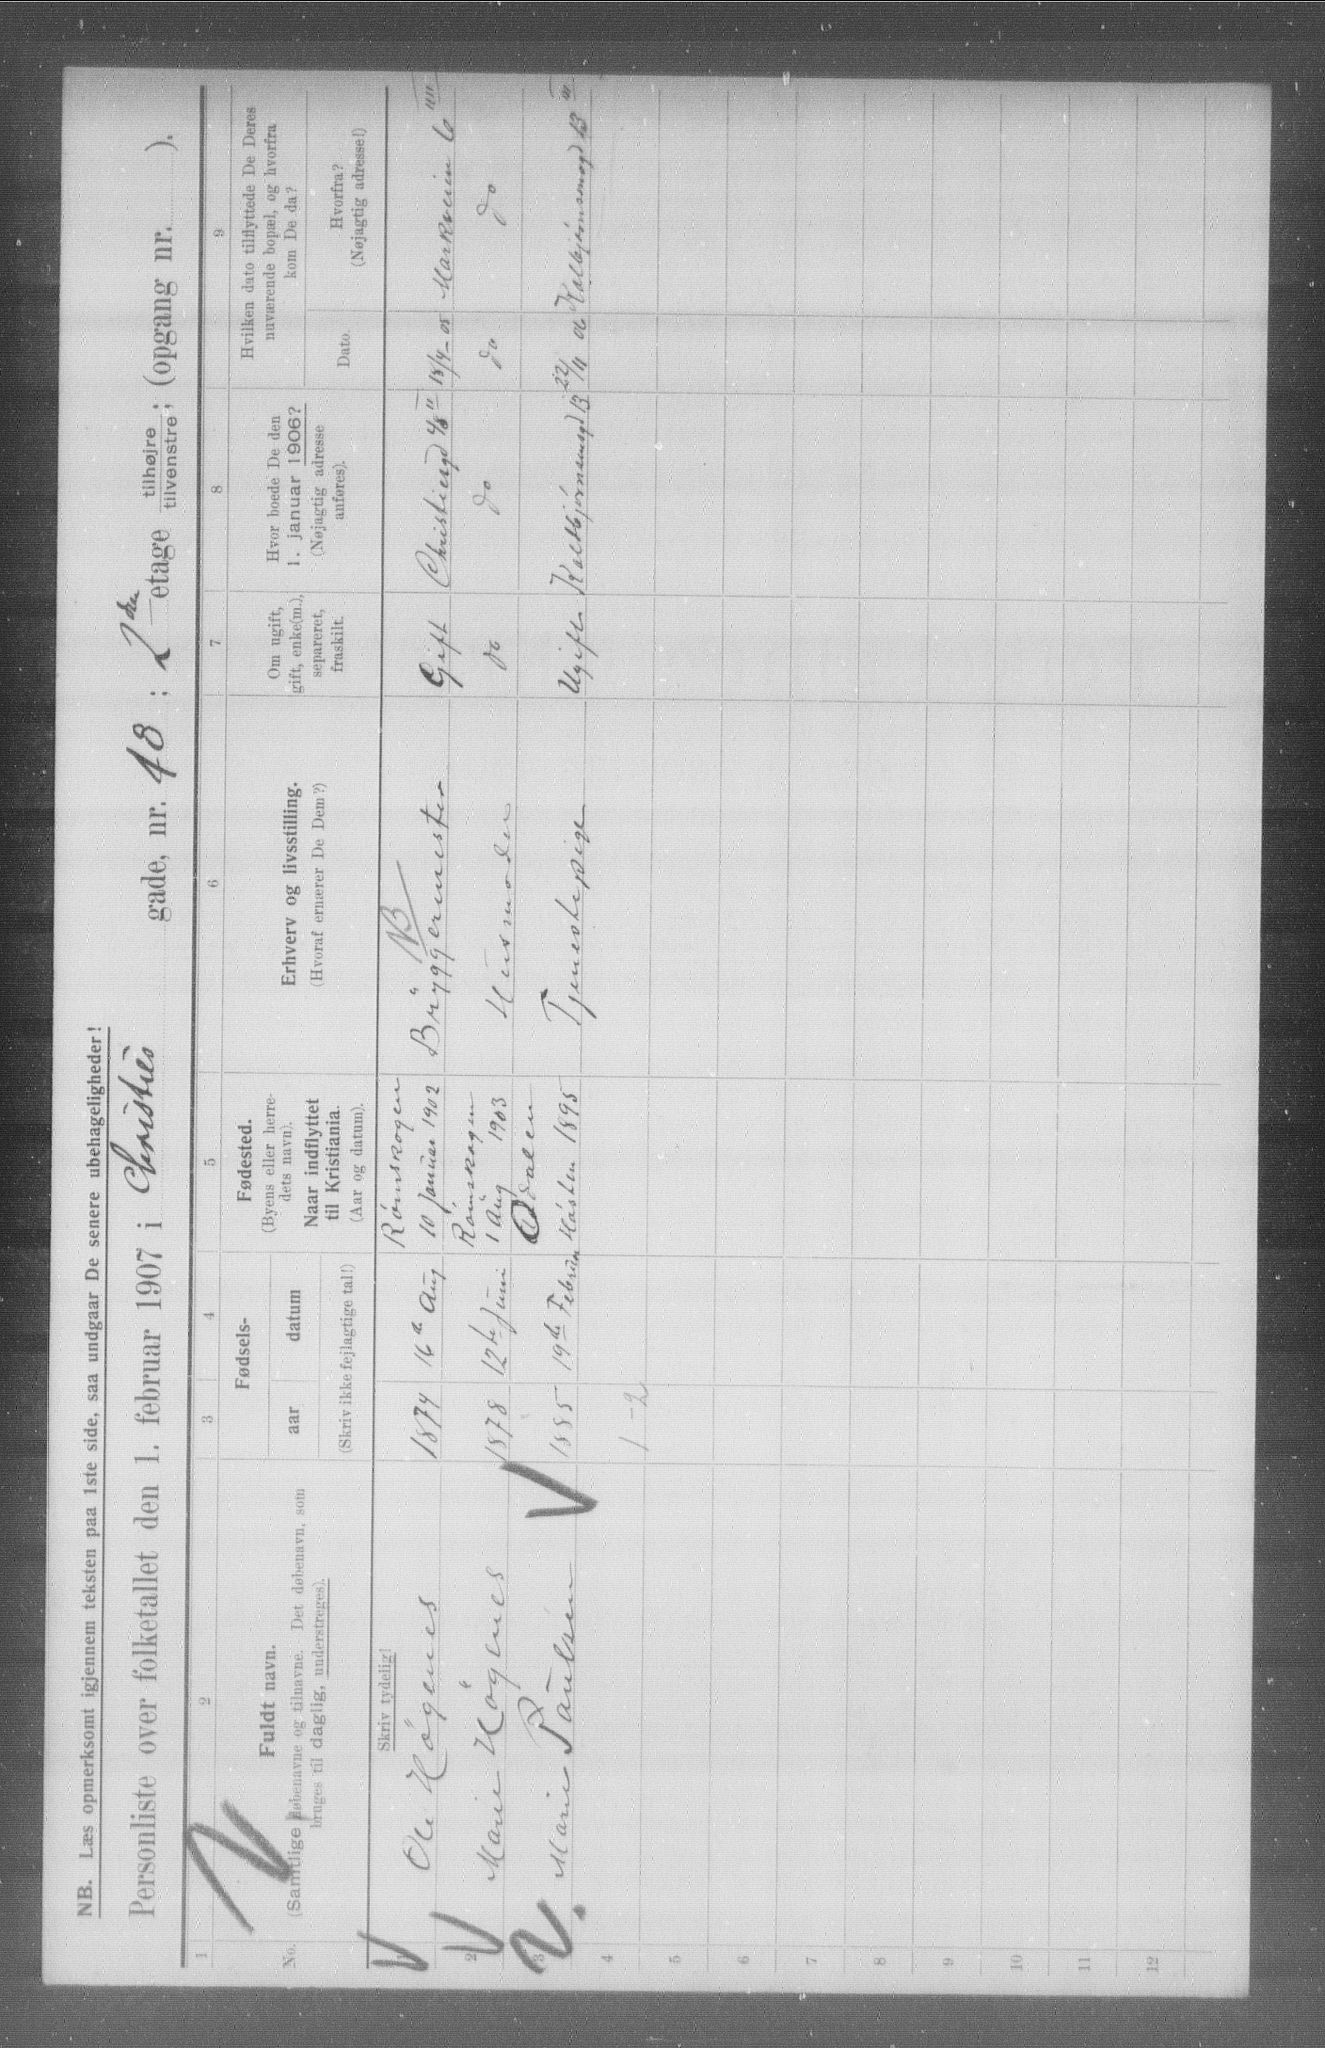 NB. Læs opmerksomt igjennem teksten paa 1ste side, saa undgaar De senere ubehageligheder!
Personliste over folketallet den 1. februar 1907 i Christies gade, nr. 48; 2den etage tilhøjre tilvenstre; (opgang nr. ).
1 2 3 4 5 6 7 8 9
No.
Fuldt navn.
(Samtlige døbenavne og tilnavne. Det døbenavn, som
bruges til daglig, understreges).
Fødsels-
aar datum
(Skriv ikke fejlagtige tal!)
Fødested.
(Byens eller herre-
dets navn).
Naar indflyttet
til Kristiania.
(Aar og datum).
Erhverv og livsstilling.
(Hvoraf ernærer De Dem?)
Om ugift,
gift, enke(m.),
separeret,
fraskilt.
Hvor boede De den
1. januar 1906?
(Nøjagtig adresse
anføres).
Hvilken dato tilflyttede De Deres
nuværende bopæl, og hvorfra
kom De da?
Dato.
Hvorfra?
(Nøjagtig adresse!)
Skriv tydelig!
Rømskogen NB
1 Ole Høgenes 1874 16de Aug 10 Januar 1902 Bryggermester Gift Christiesgd 48 II 18/4-05 Markveien 6 IIII
Rømskogen
2 Marie Høgenes 1878 12te Juni 1 Aug 1903 Husmoder do do do do
Odalen
3 Marie Paulsen 1885 19de Februar Høsten 1895 Tjenestepige Ugift 13 22/11 06 13 III
4 1-2
5
6
7
8
9
10
11
12